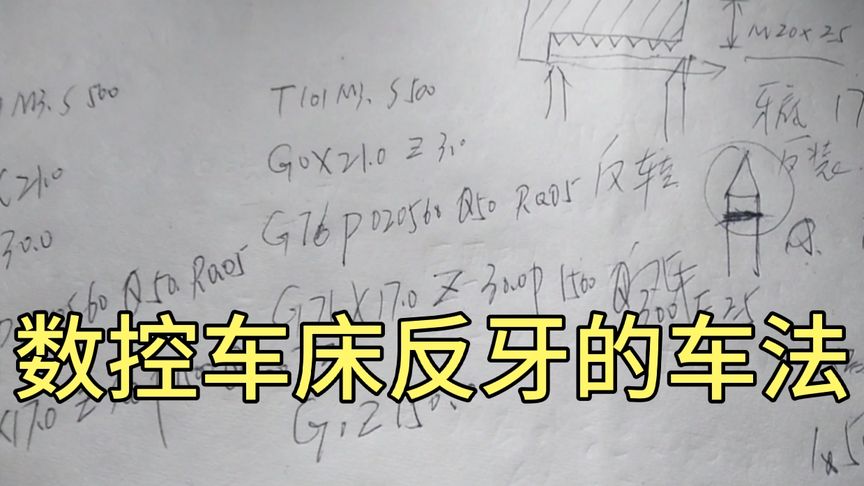 M3. S 500
T101 M3. S500
M20×25
牙底 17
X21.0
G0X21.0 Z3.0
反装
30.0
G76 P020560 Q50 R0.05 反车
20560 Q50. R0.05
G76 X17.0 Z-30.0 P1500 Q300 F2.5
数控车床反牙的车法
X17.0 Z
G0 Z150.0
1×5